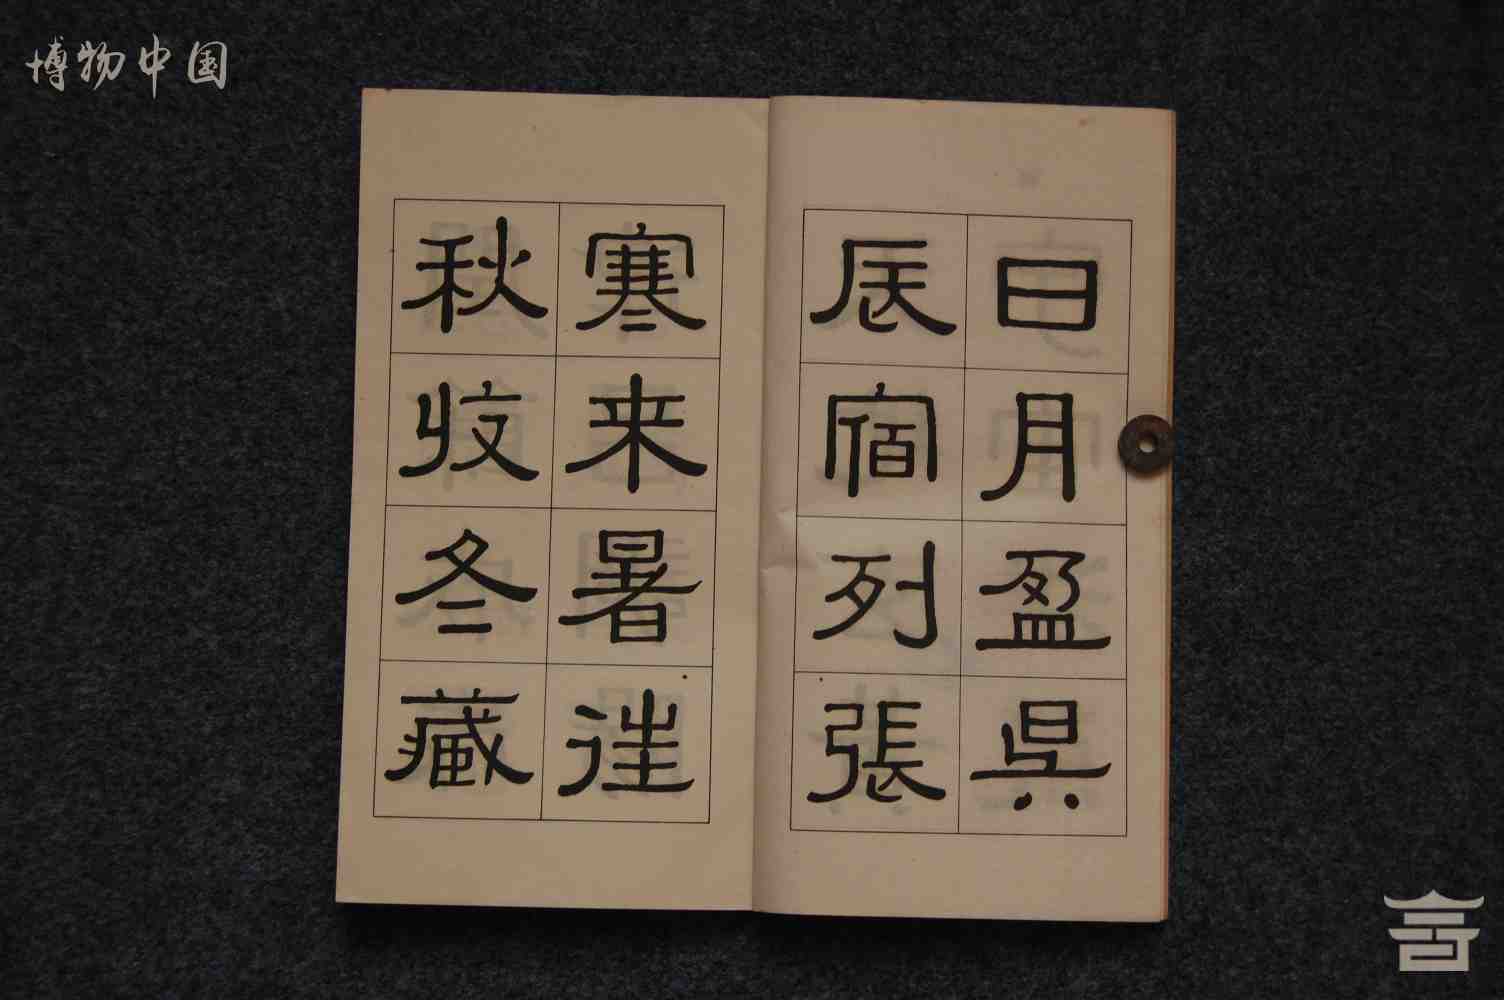 博物中国
日月盈昃
辰宿列張
寒来暑往
秋收冬藏